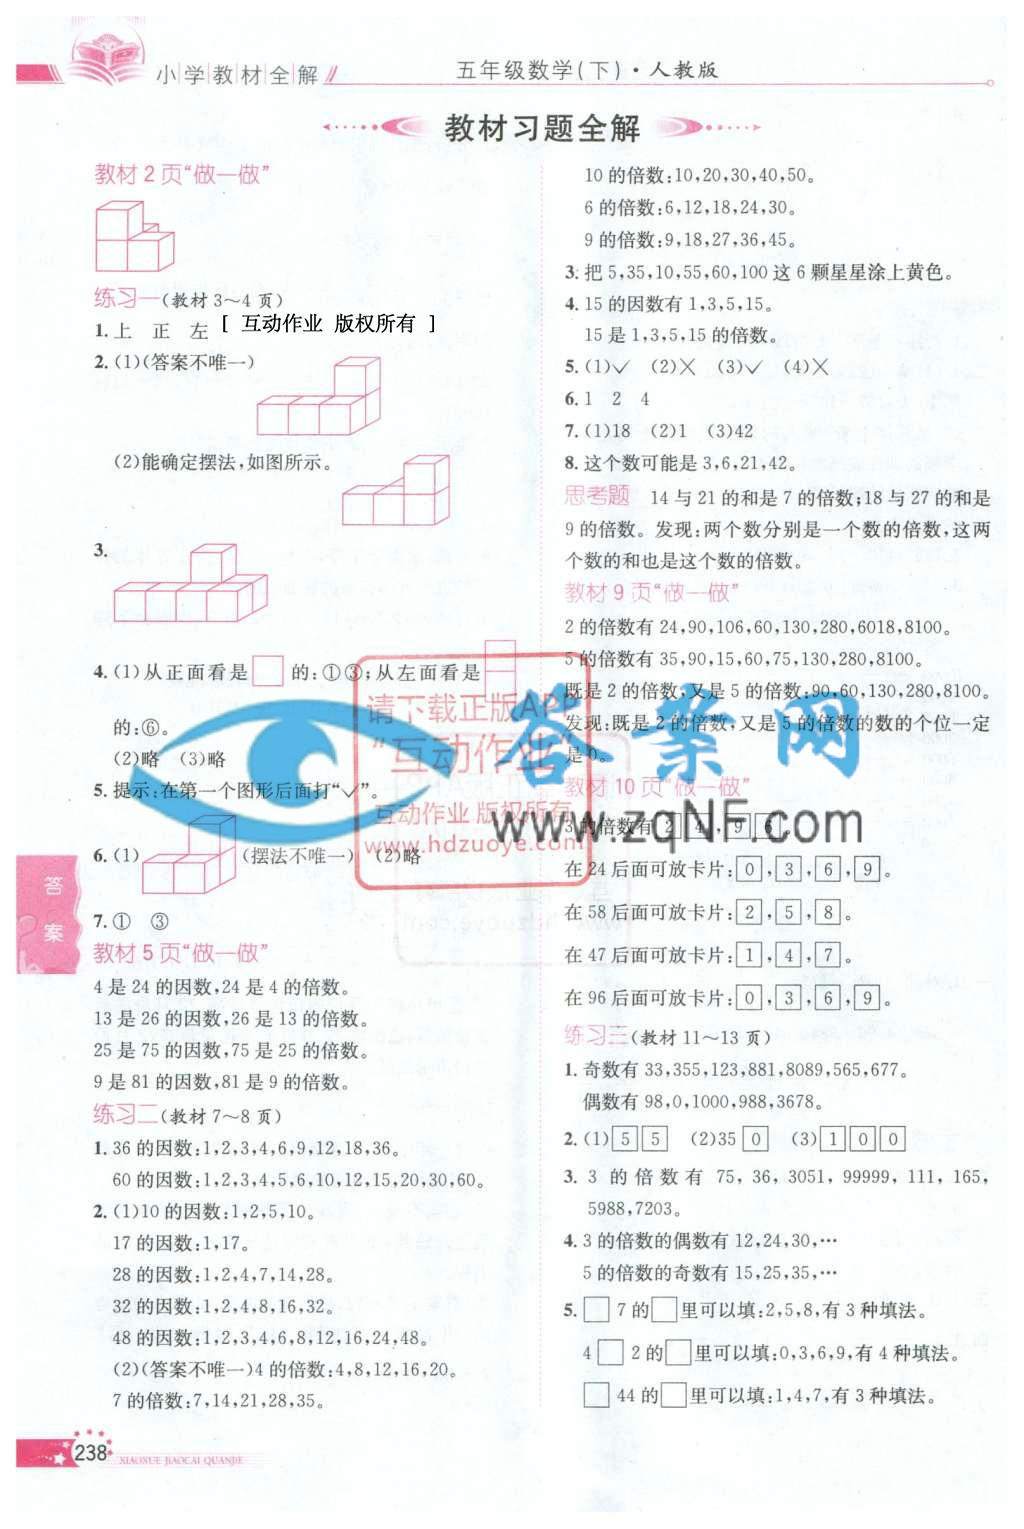 小学教材全解
五年级数学(下)·人教版
教材习题全解
教材2页“做一做”
练习一(教材3～4页)
1.上 正 左 [ 互动作业 版权所有 ]
2.(1)(答案不唯一)
(2)能确定摆法,如图所示。
3.
4.(1)从正面看是□的:①③;从左面看是
的:⑥。
(2)略 (3)略
5.提示:在第一个图形后面打“✓”。
6.(1) (摆法不唯一) (2)略
7.① ③
教材5页“做一做”
4是24的因数,24是4的倍数。
13是26的因数,26是13的倍数。
25是75的因数,75是25的倍数。
9是81的因数,81是9的倍数。
练习二(教材7～8页)
1.36的因数:1,2,3,4,6,9,12,18,36。
60的因数:1,2,3,4,5,6,10,12,15,20,30,60。
2.(1)10的因数:1,2,5,10。
17的因数:1,17。
28的因数:1,2,4,7,14,28。
32的因数:1,2,4,8,16,32。
48的因数:1,2,3,4,6,8,12,16,24,48。
(2)(答案不唯一)4的倍数:4,8,12,16,20。
7的倍数:7,14,21,28,35。
10的倍数:10,20,30,40,50。
6的倍数:6,12,18,24,30。
9的倍数:9,18,27,36,45。
3.把5,35,10,55,60,100这6颗星星涂上黄色。
4.15的因数有1,3,5,15。
15是1,3,5,15的倍数。
5.(1)✓ (2)✕ (3)✓ (4)✕
6.1 2 4
7.(1)18 (2)1 (3)42
8.这个数可能是3,6,21,42。
思考题 14与21的和是7的倍数;18与27的和是
9的倍数。发现:两个数分别是一个数的倍数,这两
个数的和也是这个数的倍数。
教材9页“做一做”
2的倍数有24,90,106,60,130,280,6018,8100。
5的倍数有35,90,15,60,75,130,280,8100。
既是2的倍数,又是5的倍数:90,60,130,280,8100。
发现:既是2的倍数,又是5的倍数的数的个位一定
是0。
教材10页“做一做”
3的倍数有24,96。
在24后面可放卡片:0,3,6,9。
在58后面可放卡片:2,5,8。
在47后面可放卡片:1,4,7。
在96后面可放卡片:0,3,6,9。
练习三(教材11～13页)
1.奇数有33,355,123,881,8089,565,677。
偶数有98,0,1000,988,3678。
2.(1)55 (2)350 (3)100
3.3的倍数有75,36,3051,99999,111,165,
5988,7203。
4.3的倍数的偶数有12,24,30,…
5的倍数的奇数有15,25,35,…
5.□7的□里可以填:2,5,8,有3种填法。
4□2的□里可以填:0,3,6,9,有4种填法。
□44的□里可以填:1,4,7,有3种填法。
请下载正版APP
“互动作业”
互动作业 版权所有
www.hdzuoye.com
答案网
www.zqNF.com
答案
238
XIAOXUE JIAOCAI QUANJIE